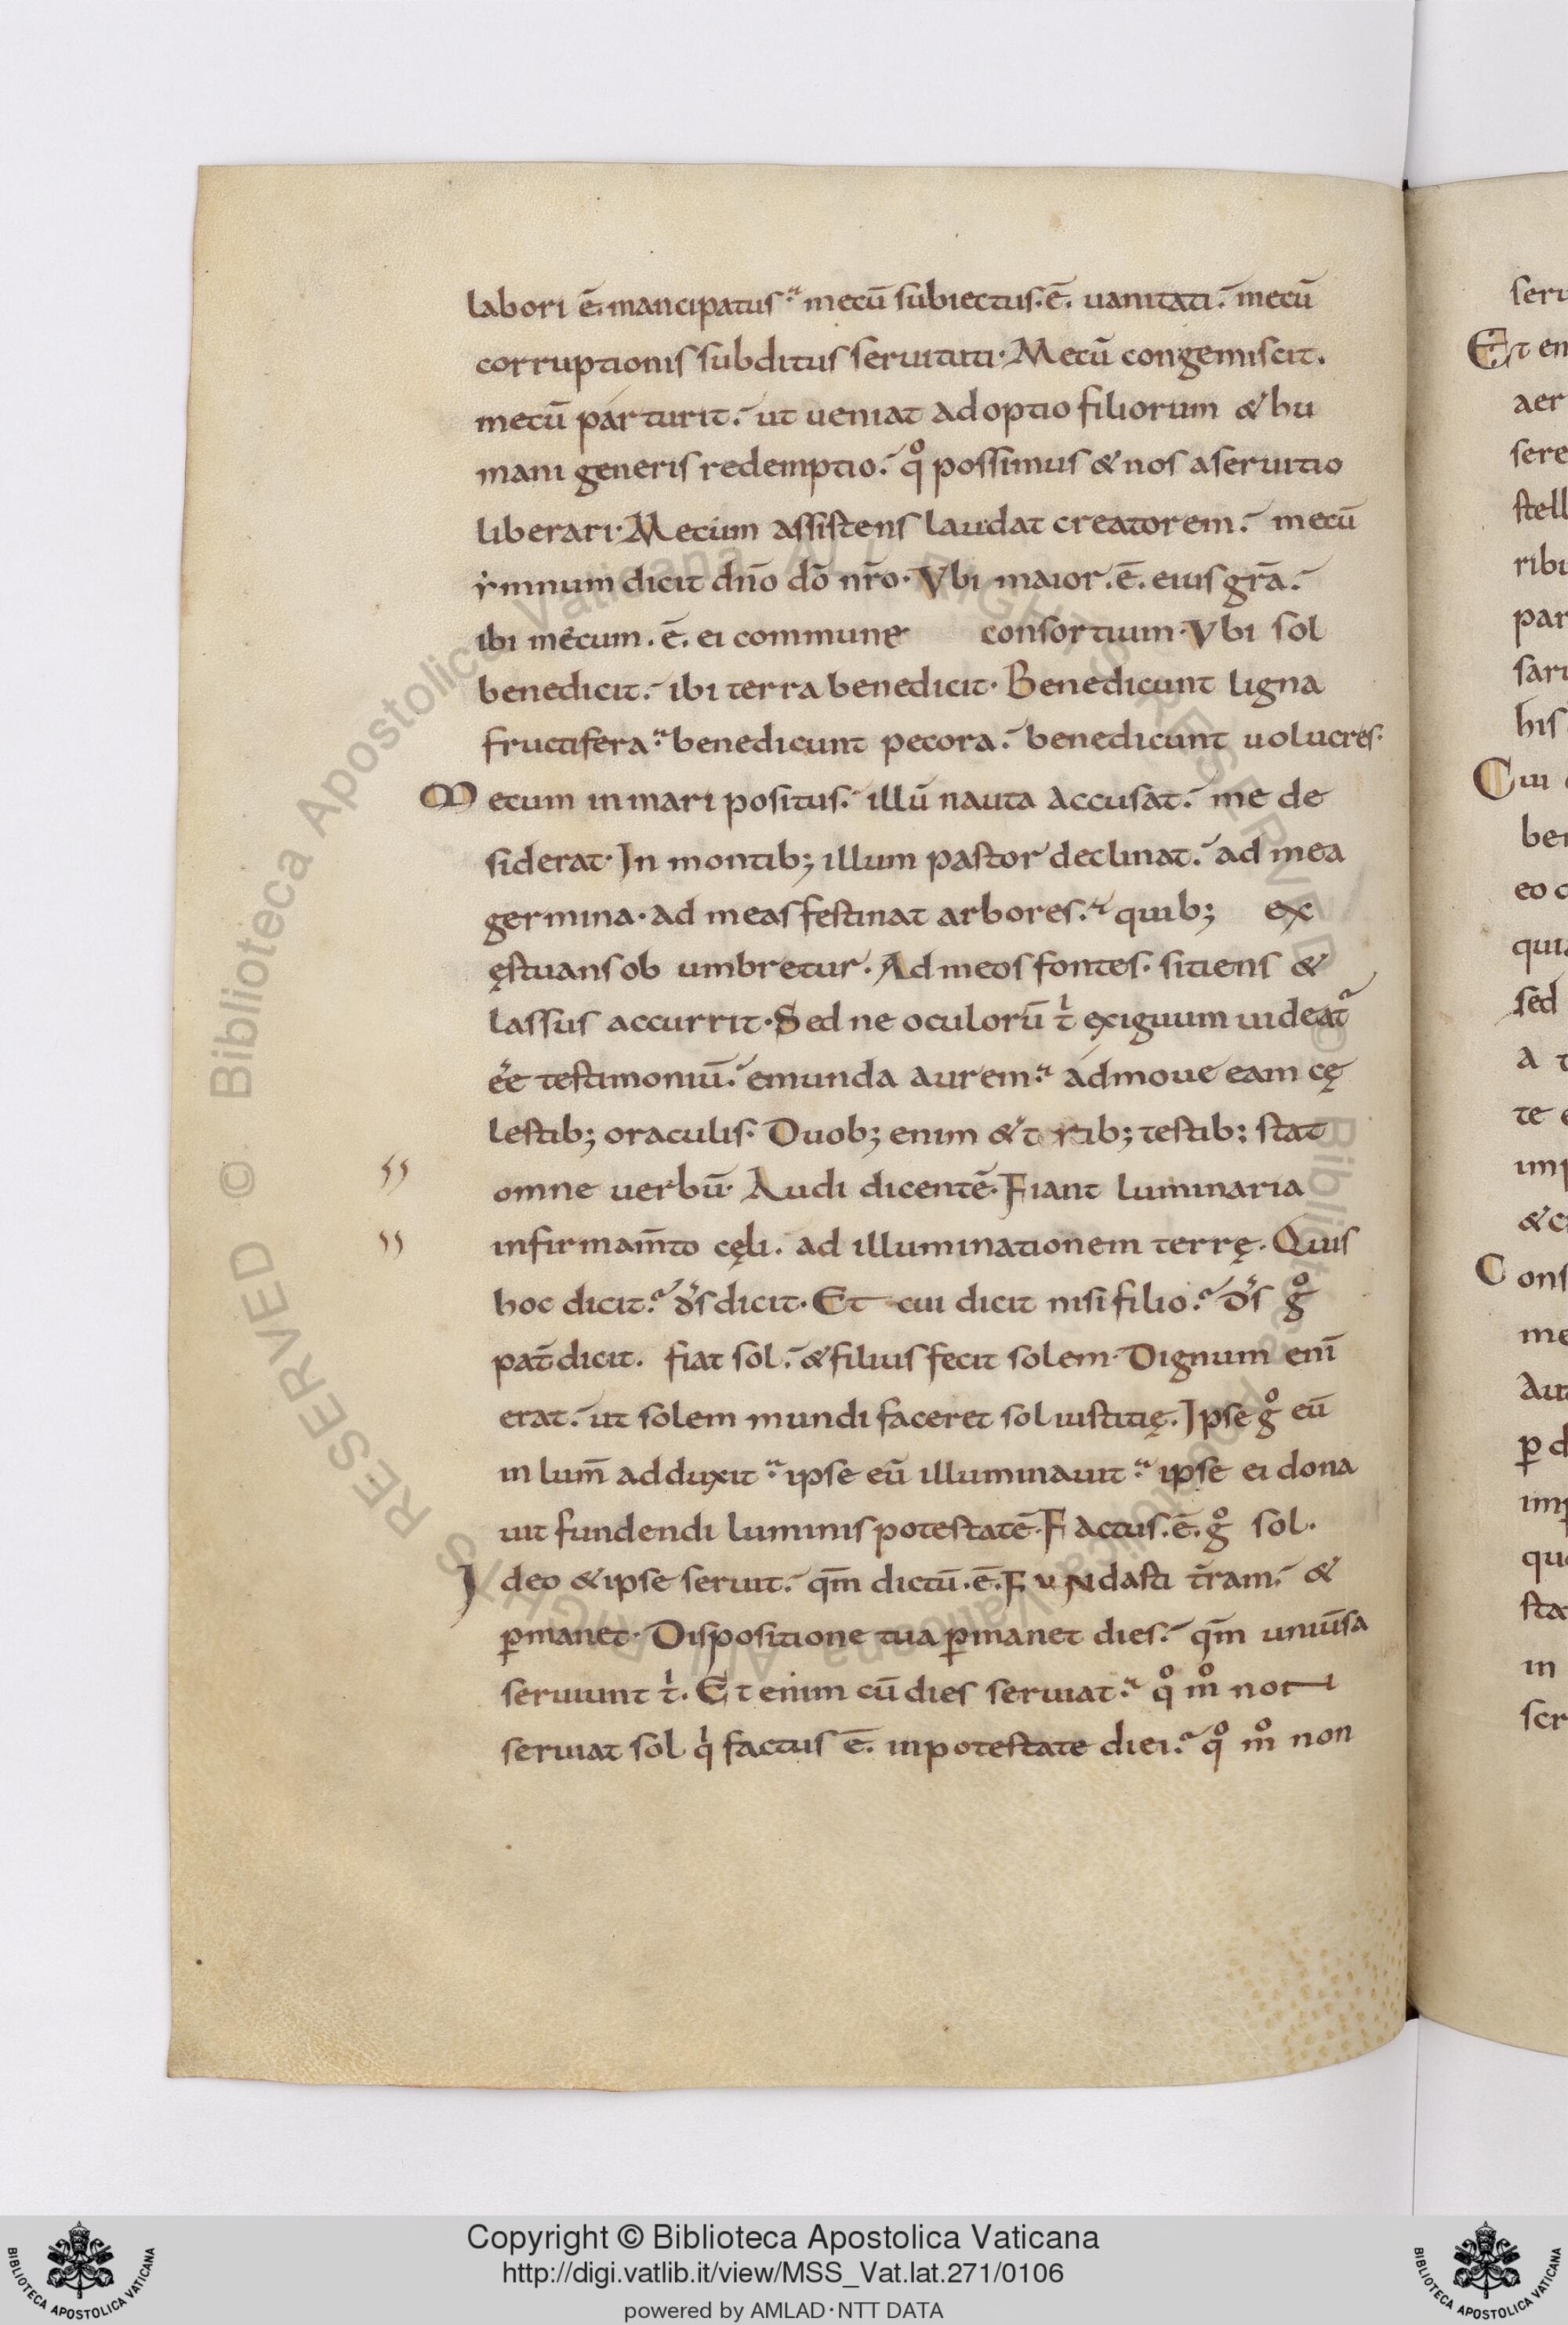 labori ē. mancipatus. mecū subiectus. ē. uanitati. mecū
corruptionis subditus seruituti. Mecū congemiscit.
mecū parturit. ut ueniat adoptio filiorum & hu
mani generis redemptio. qͦ possimus & nos a seruitio
liberari. Mecum assistens laudat creatorem. mecū
ẏmnum dicit dño dō nr̄o. Vbi maior. ē. eius grā.
ibi mecum. ē. ei commune consortium. Vbi sol
benedicit. ibi terra benedicit. Benedicunt ligna
fructifera. benedicunt pecora. benedicunt uolucres.
Metum in mari positus. illū nauta accusat. me de
siderat. In montib; illum pastor declinat. ad mea
germina. ad meas festinat arbores. quib; ex
ęstuans ob umbretur. Ad meos fontes. sitiens &
lassus accurrit. Sed ne oculorū tⁱ exiguum uideat᷑
ēe testimoniū. emunda aurem. admoue eam cę
lestib; oraculis. Duob; enim & trib; testib; stat
omne uerbū. Audi dicentē. Fiant luminaria
in firmam̄to cęli. ad illuminationem terrę. Quis
hoc dicit. d̄s dicit. Et cui dicit nisi filio. d̄s gͦ
pat̄ dicit. fiat sol. & filius fecit solem. Dignum enī
erat. ut solem mundi faceret sol iustitię. Ipse gͦ eū
in lum̄ adduxit. ipse eū illuminauit. ipse ei dona
uit fundendi luminis potestatē. Factus. ē. gͦ sol.
Ideo & ipse seruit. qm̄ dictū. ē. FVNdasti t̄ram. &
ꝑmanet. Dispositione tua ꝑmanet dies. qm̄ uniūsa
seruiunt tⁱ. Et enim cū dies seruiat. qͦ mͦ non
seruiat sol qⁱ factus ē. in potestate diei. qͦ mͦ non
seru
Et en
aer
sere
stell
ribu
par
saru
his
Cui
ben
eo c
quia
sed
a t
te e
imp
& c
Cons
me
Aut
ꝑ d
imp
que
sta
in
scr
Copyright © Biblioteca Apostolica Vaticana
http://digi.vatlib.it/view/MSS_Vat.lat.271/0106
powered by AMLAD·NTT DATA
BIBLIOTECA APOSTOLICA VATICANA
BIBLIOTECA APOSTOLICA VATICANA
© Biblioteca Apostolica Vaticana ALL RIGHTS RESERVED © Biblioteca Apostolica Vaticana ALL RIGHTS RESERVED